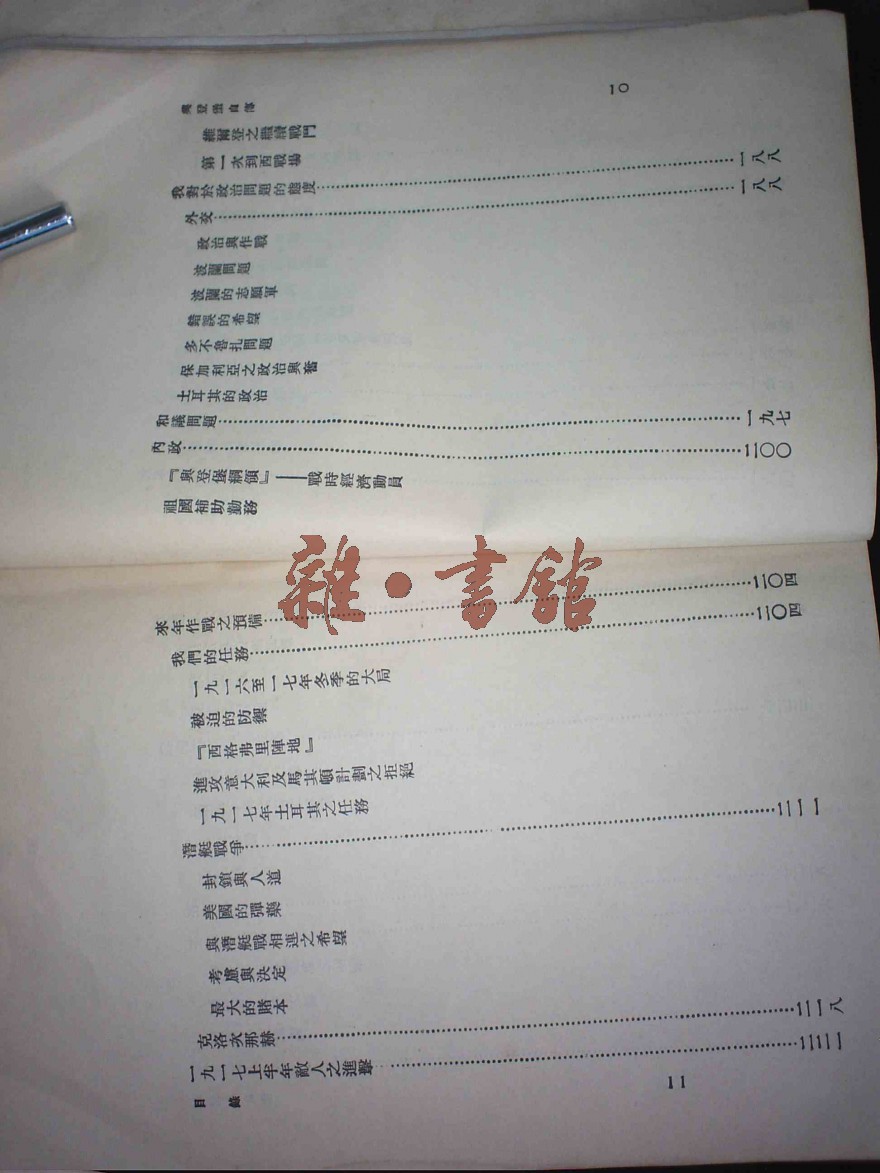 10
興登堡自傳
維爾登之繼續戰鬥
第一次到西戰場
我對於政治問題的態度……一八八
外交……一八八
政治與作戰
波蘭問題
波蘭的志願軍
錯誤的希望
多不魯扎問題
保加利亞之政治興奮
土耳其的政治
和議問題……一九七
內政……二〇〇
『興登堡綱領』——戰時經濟動員
祖國補助勤務
雜·書館
來年作戰之預備……二〇四
我們的任務……二〇四
一九一六至一七年冬季的大局
被迫的防禦
『西格弗里陣地』
進攻意大利及馬其頓計劃之拒絕
一九一七年土耳其之任務
潛艇戰爭……二一一
封鎖與人道
美國的彈藥
與潛艇戰相連之希望
考慮與決定
最大的賭本
克洛次那赫……二一八
一九一七上半年敵人之進擊……二二一
目錄
11